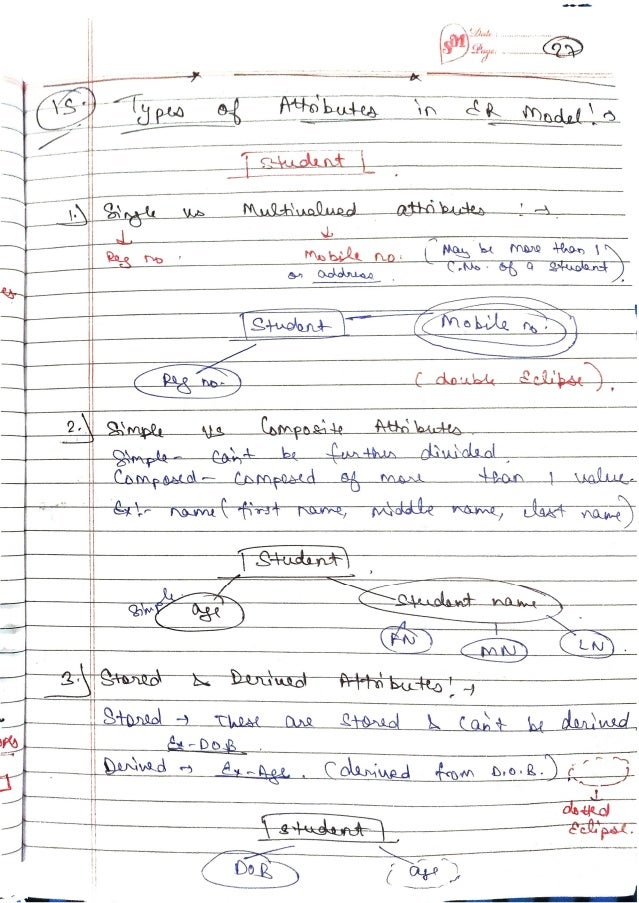 SM Date
Page 27
15. Types of Attributes in ER Model! →
Student
1.) Single vs Multivalued attributes : →
Reg no. Mobile no. (May be more than 1
or address C.No. of a student)
Student Mobile no.
Reg no. (double Eclipse).
2.) Simple vs Composite Attributes
Simple - can't be further divided.
Composed - Composed of more than 1 value.
Ex:- name (first name, middle name, last name)
Student
Simple age Student name
FN MN LN
3.) Stored & Derived Attributes! →
Stored → These are stored & can't be derived
Ex-DOB.
Derived → Ex-Age. (derived from D.O.B.)
dotted
Eclipse.
Student
DOB age